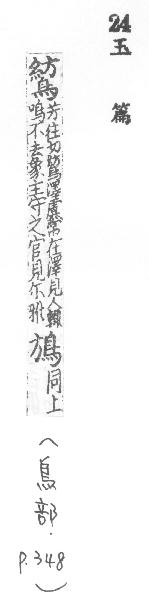 24
玉篇
鶭芳往切鶭澤虞常在澤見人輒
鳴不去象主守之官見尔雅
鴋同上
(鳥部.
p.348)